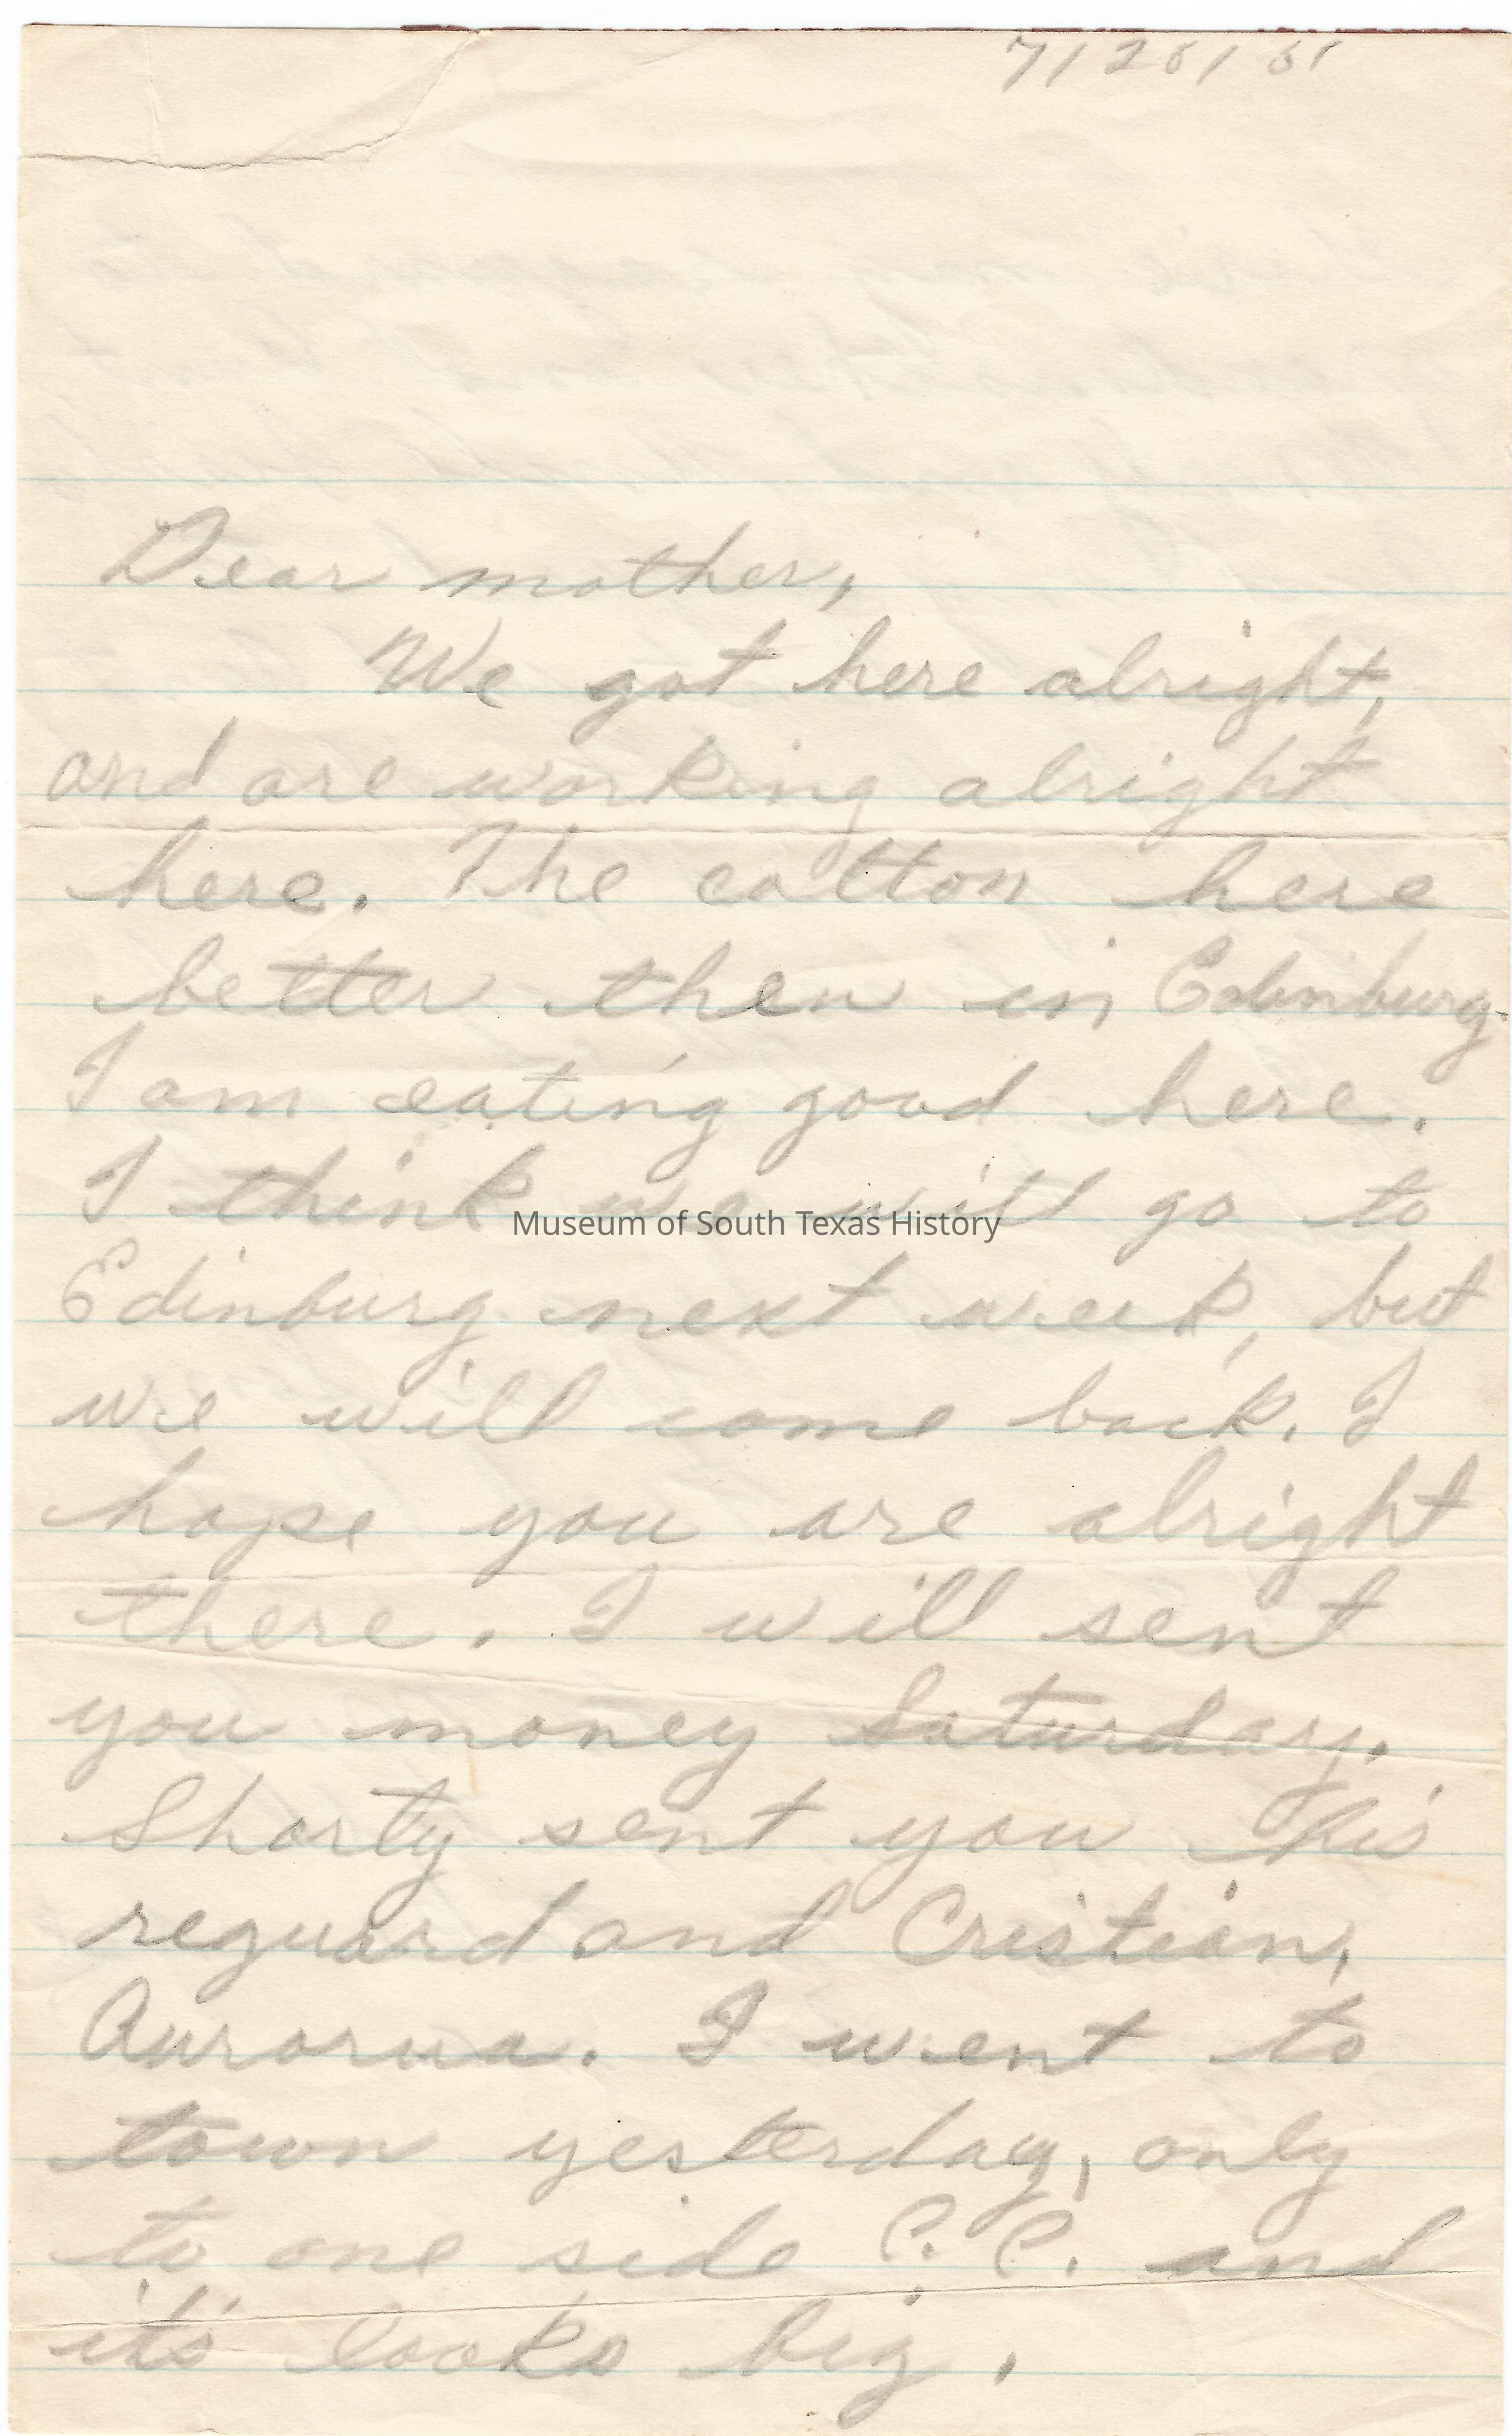 7/26/51
Dear mother,
We got here alright,
and are working alright
here. The cotton here
better then in Edinburg.
I am eating good here.
I think we will go to
Museum of South Texas History
Edinburg next week, but
we will come back. I
hope you are alright
there. I will sent
you money Saturday.
Shorty sent you his
reguard and Cristian,
Aurorua. I went to
town yesterday, only
to one side C. C. and
it's looks big.